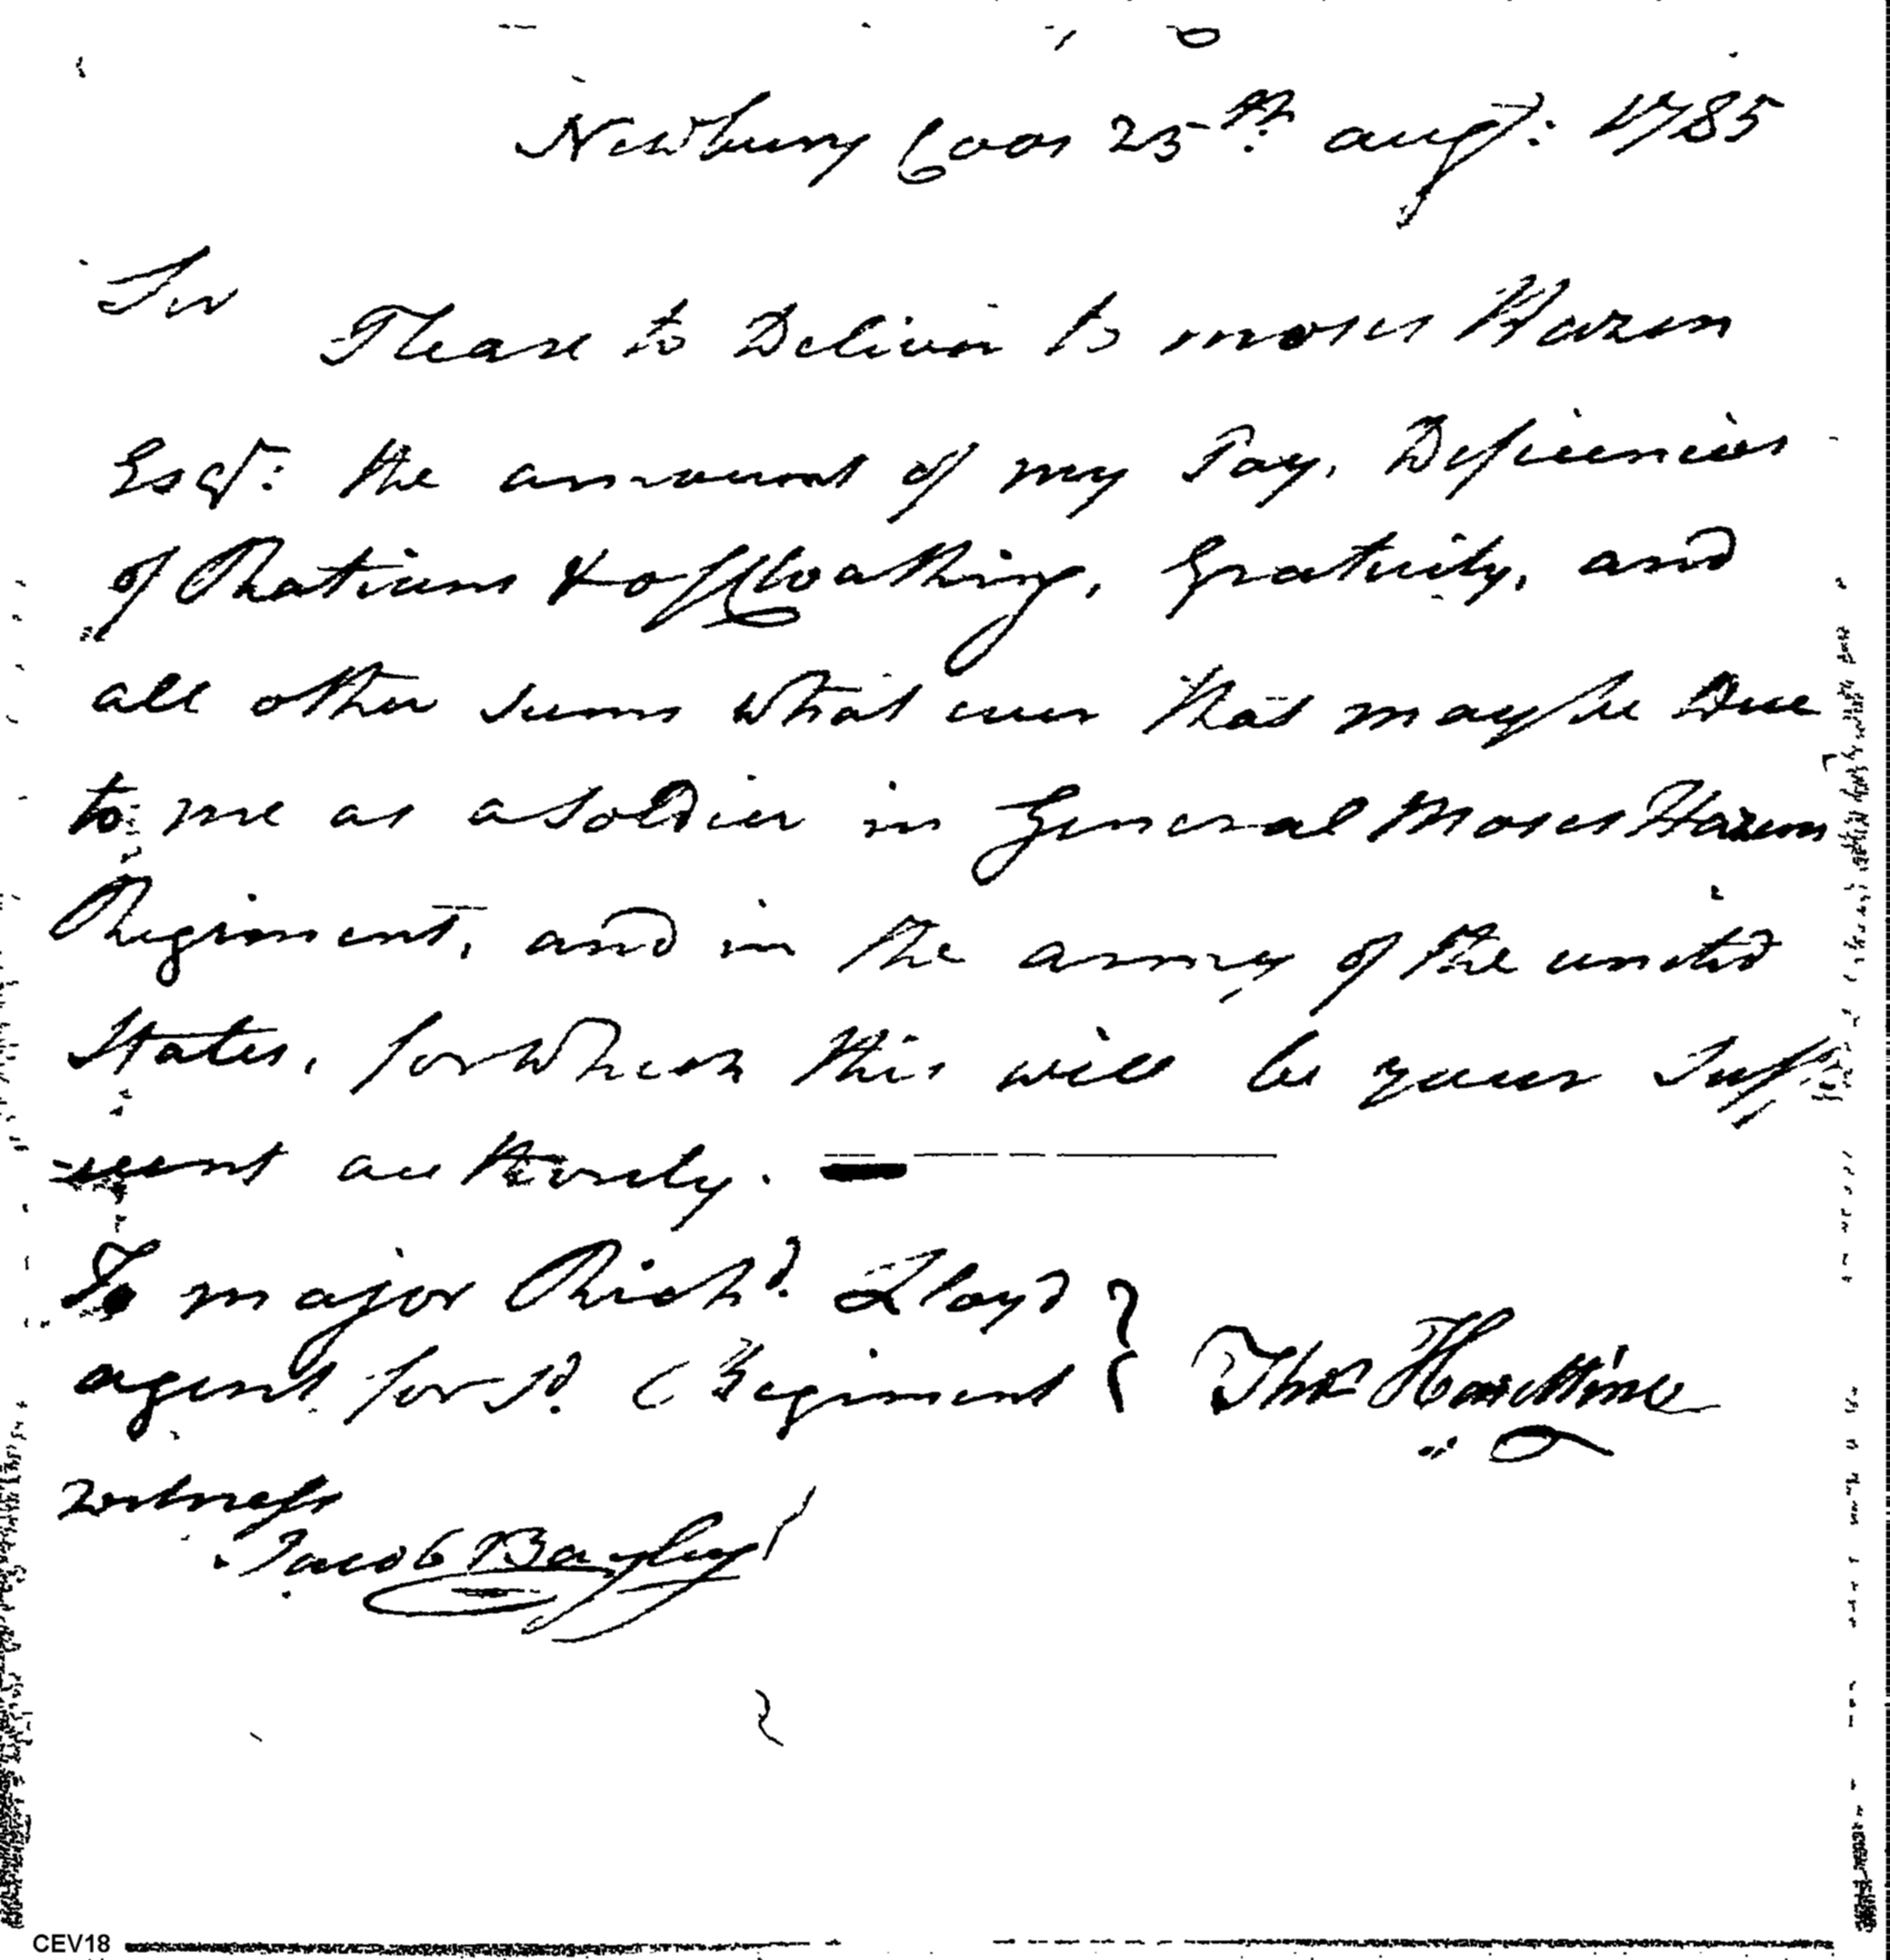 Newbury Coos 25th. augt: 1785
Sir
Please to Deliver to moses Hazen
Esqr: the amount of my Pay, Deficiencies
of Rations & of Cloathing, Gratuity, and
all other sums what ever that may be Due
to me as a Soldier in General Moses Hazens
Regiment, and in the army of the united
States, for Which this will be your Suffi
-cient authority. —
To major Richd. Lloyd
agent for sd. Regiment
Thos
witness
Jacob Bayley
CEV18